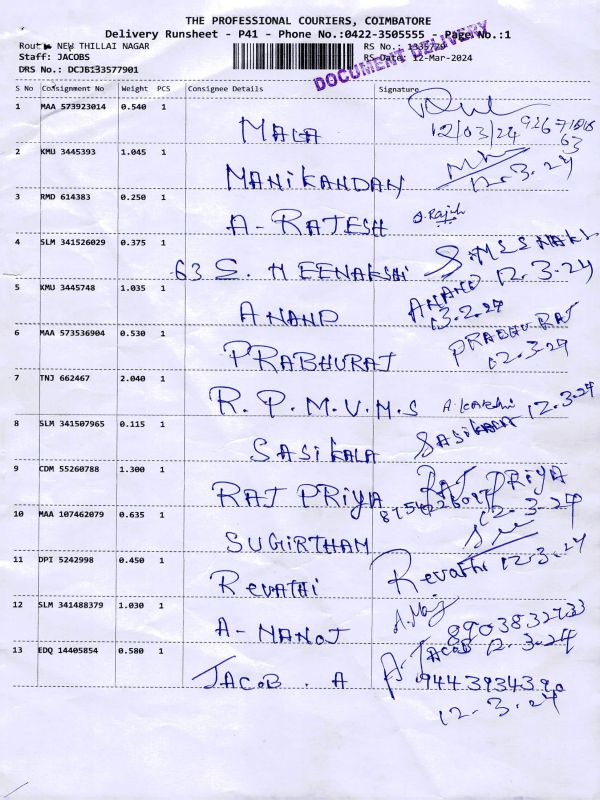 THE PROFESSIONAL COURIERS, COIMBATORE
Delivery Runsheet - P41 - Phone No.:0422-3505555 -- Page No.:1
Route NEW THILLAI NAGAR
RS No.: 1335779
Staff: JACOBS
RS Date: 12-Mar-2024
DRS No.: DCJB133577901
DOCUMENT DELIVERY
S No Consignment No Weight PCS Consignee Details Signature
1 MAA 573923014 0.540 1
MALA 12/03/24
63
2 KMU 3445393 1.045 1
MANIKANDAN 12.3.24
3 RMD 614383 0.250 1
A-RAJESH
4 SLM 341526029 0.375 1
63 S. MEENAKSHI 12.3.24
5 KMU 3445748 1.035 1
ANAND ANAND
6 MAA 573536904 0.530 1
PRABHURAJ PRABHURAJ
12.3.24
7 TNJ 662467 2.040 1
R.P.M.V.M.S 12.3.24
8 SLM 341507965 0.115 1
SASIKALA SASIKALA
9 CDM 55260788 1.300 1
RAJ PRIYA RAJ PRIYA
12.3.24
10 MAA 107462079 0.635 1
SUGIRTHAM
11 DPI 5242998 0.450 1
REVATHI Revathi 12.3.24
12 SLM 341488379 1.030 1
A-MANOJ 8903832733
12.3.24
13 EDQ 14405854 0.580 1
JACOB . A A-JACOB
9443934390
12.3.24